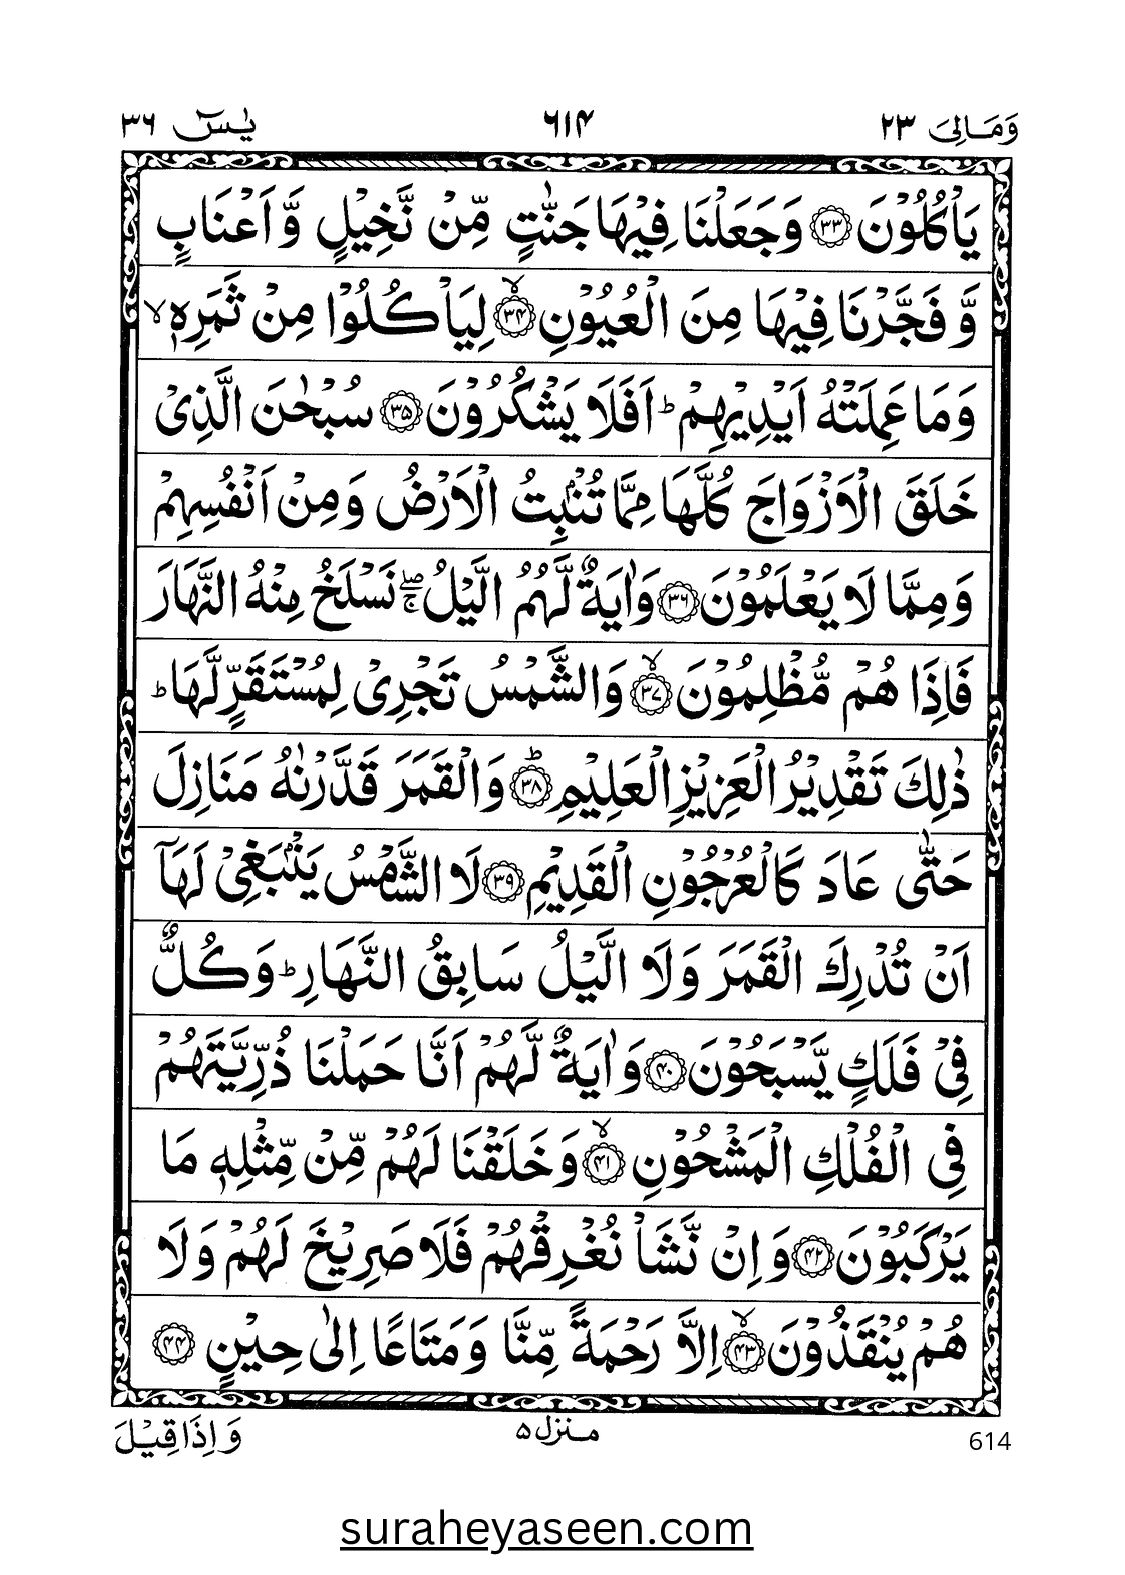 وَمَالِیَ ۲۳
۶۱۴
یٰسٓ ۳۶
یَاْكُلُوْنَ ﴿۳۳﴾ وَجَعَلْنَا فِیْهَا جَنّٰتٍ مِّنْ نَّخِیْلٍ وَّ اَعْنَابٍ
وَّ فَجَّرْنَا فِیْهَا مِنَ الْعُیُوْنِ ﴿۳۴﴾ۙ لِیَاْكُلُوْا مِنْ ثَمَرِهٖ ۙ
وَمَا عَمِلَتْهُ اَیْدِیْهِمْ ؕ اَفَلَا یَشْكُرُوْنَ ﴿۳۵﴾ سُبْحٰنَ الَّذِیْ
خَلَقَ الْاَزْوَاجَ كُلَّهَا مِمَّا تُنْۢبِتُ الْاَرْضُ وَمِنْ اَنْفُسِهِمْ
وَمِمَّا لَا یَعْلَمُوْنَ ﴿۳۶﴾ وَاٰیَةٌ لَّهُمُ الَّیْلُ ۖۚ نَسْلَخُ مِنْهُ النَّهَارَ
فَاِذَا هُمْ مُّظْلِمُوْنَ ﴿۳۷﴾ۙ وَالشَّمْسُ تَجْرِیْ لِمُسْتَقَرٍّ لَّهَا ؕ
ذٰلِكَ تَقْدِیْرُ الْعَزِیْزِ الْعَلِیْمِ ﴿۳۸﴾ؕ وَالْقَمَرَ قَدَّرْنٰهُ مَنَازِلَ
حَتّٰی عَادَ كَالْعُرْجُوْنِ الْقَدِیْمِ ﴿۳۹﴾ لَا الشَّمْسُ یَنْۢبَغِیْ لَهَاۤ
اَنْ تُدْرِكَ الْقَمَرَ وَلَا الَّیْلُ سَابِقُ النَّهَارِ ؕ وَكُلٌّ
فِیْ فَلَكٍ یَّسْبَحُوْنَ ﴿۴۰﴾ وَاٰیَةٌ لَّهُمْ اَنَّا حَمَلْنَا ذُرِّیَّتَهُمْ
فِی الْفُلْكِ الْمَشْحُوْنِ ﴿۴۱﴾ۙ وَخَلَقْنَا لَهُمْ مِّنْ مِّثْلِهٖ مَا
یَرْكَبُوْنَ ﴿۴۲﴾ وَاِنْ نَّشَاْ نُغْرِقْهُمْ فَلَا صَرِیْخَ لَهُمْ وَلَا
هُمْ یُنْقَذُوْنَ ﴿۴۳﴾ۙ اِلَّا رَحْمَةً مِّنَّا وَمَتَاعًا اِلٰی حِیْنٍ ﴿۴۴﴾
وَاِذَا قِیْلَ
منزل ۵
614
suraheyaseen.com